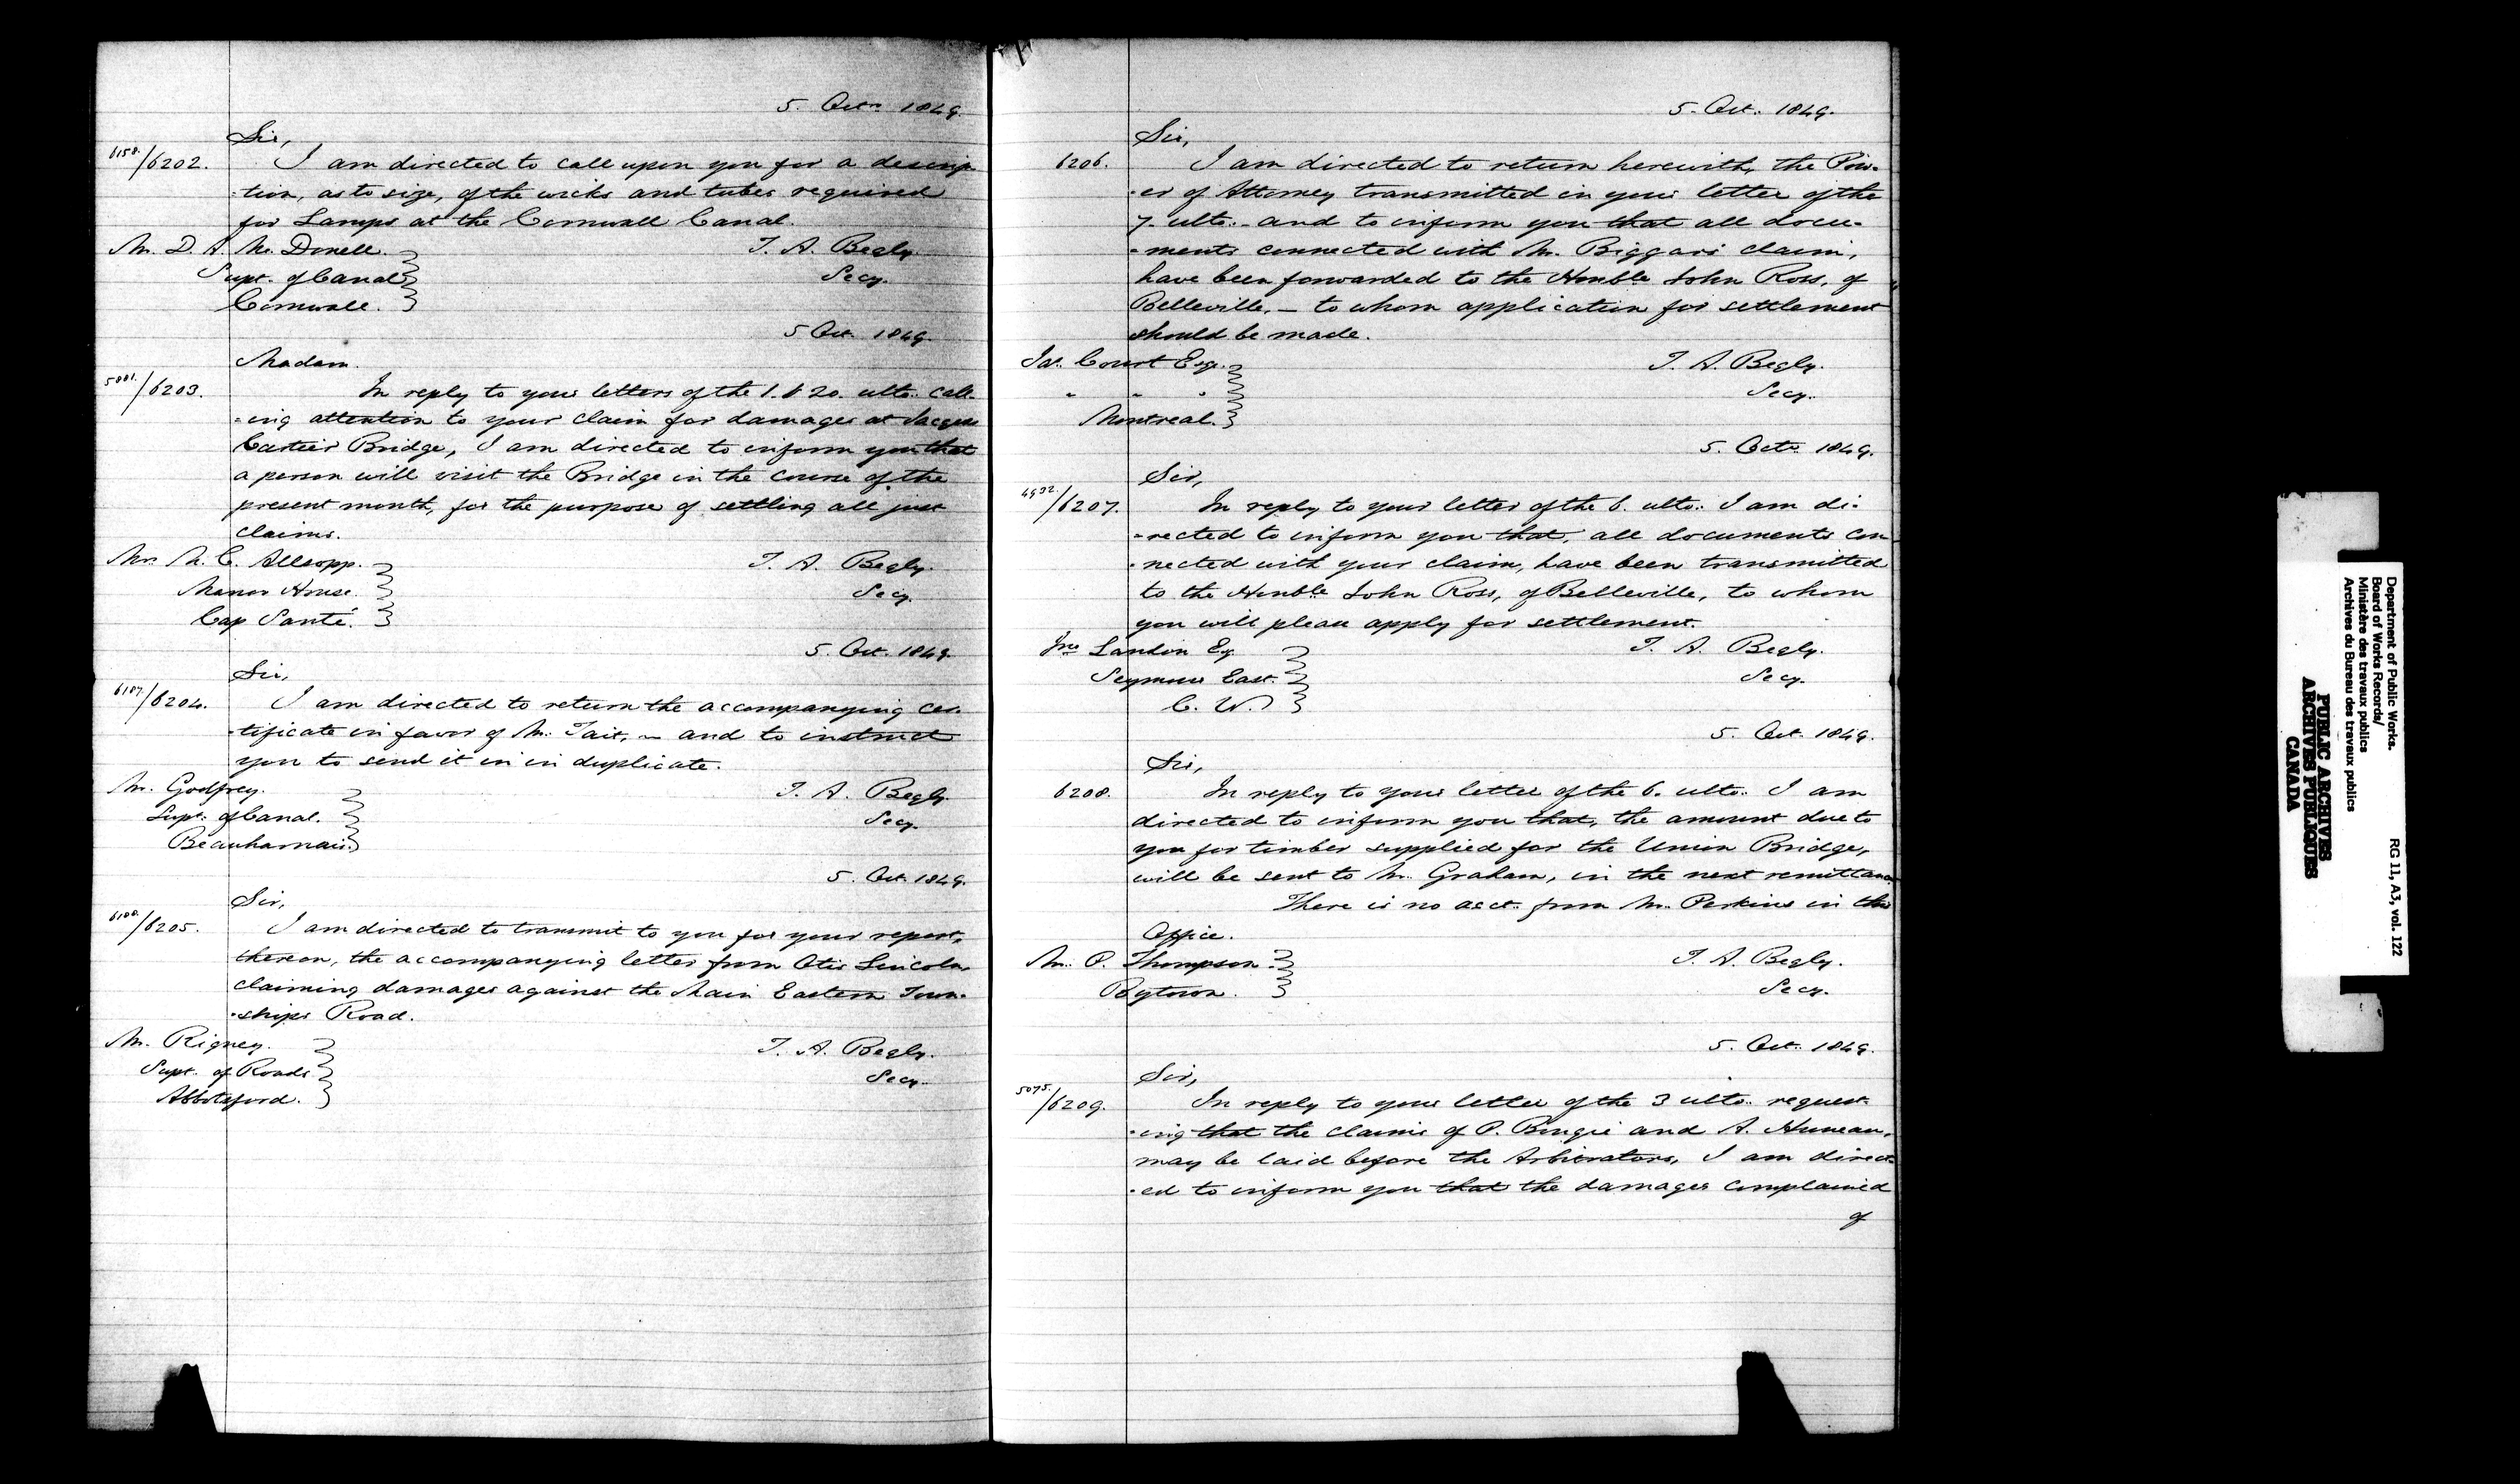 5. Octr. 1849.
Sir,
6158./6202. I am directed to call upon you for a descrip-
-tion, as to size, of the wicks and tubes required
for Lamps at the Cornwall Canal.
Mr. D. A. Mc. Donell. T. A. Begly.
Supt. of Canal Secy.
Cornwall.
5 Oct. 1849.
Madam.
5881./6203. In reply to your letters of the 1. & 20. ulto. call-
-ing attention to your claim for damages at Jacques
Cartier Bridge, I am directed to inform you that
a person will visit the Bridge in the course of the
present month, for the purpose of settling all just
claims.
Mrs. M. C. Allsopp. T. A. Begly.
Manor House. Secy.
Cap Santé.
5. Oct. 1849.
Sir,
6107./6204. I am directed to return the accompanying cer-
-tificate in favor of Mr. Tait, - and to instruct
you to send it in in duplicate.
Mr. Godfrey. T. A. Begly.
Supt. of Canal. Secy.
Beauharnais.
5. Oct. 1849.
Sir,
6100./6205. I am directed to transmit to you for your report,
thereon, the accompanying letter from Otis Lincoln,
claiming damages against the Main Eastern Town-
-ships Road.
Mr. Rigney. T. A. Begly.
Supt. of Roads. Secy.
Abbotsford.
5. Oct. 1849.
Sir,
6206. I am directed to return herewith, the Pow-
-er of Attorney transmitted in your letter of the
7. ulto. - and to inform you that all docu-
-ments connected with Mr. Biggars claim,
have been forwarded to the Honble. John Ross, of
Belleville, - to whom application for settlement
should be made.
Jas. Court Esqr. T. A. Begly.
" " " Secy.
Montreal.
5. Octr. 1849.
Sir,
4992./6207. In reply to your letter of the 6. ulto. I am di-
-rected to inform you that, all documents con-
-nected with your claim, have been transmitted
to the Honble John Ross, of Belleville, to whom
you will please apply for settlement.
Jno Landon Esq. T. A. Begly.
Seymour East. Secy.
C. W.
5. Oct. 1849.
Sir,
6208. In reply to your letter of the 6. ulto. I am
directed to inform you that, the amount due to
you for timber supplied for the Union Bridge,
will be sent to Mr. Graham, in the next remittance.
There is no acct. from Mr. Perkins in this
Office.
Mr. P. Thompson. T. A. Begly.
Bytown. Secy.
5. Oct. 1849.
Sir,
5075./6209. In reply to your letter of the 3 ulto. request-
-ing that the claims of P. Bingie and A. Huneau,
may be laid before the Arbitrators, I am direct-
-ed to inform you that the damages complained
of
Department of Public Works.
Board of Works Records/
Ministère des travaux publics
Archives du Bureau des travaux publics
RG 11, A3, vol. 122
PUBLIC ARCHIVES
ARCHIVES PUBLIQUES
CANADA